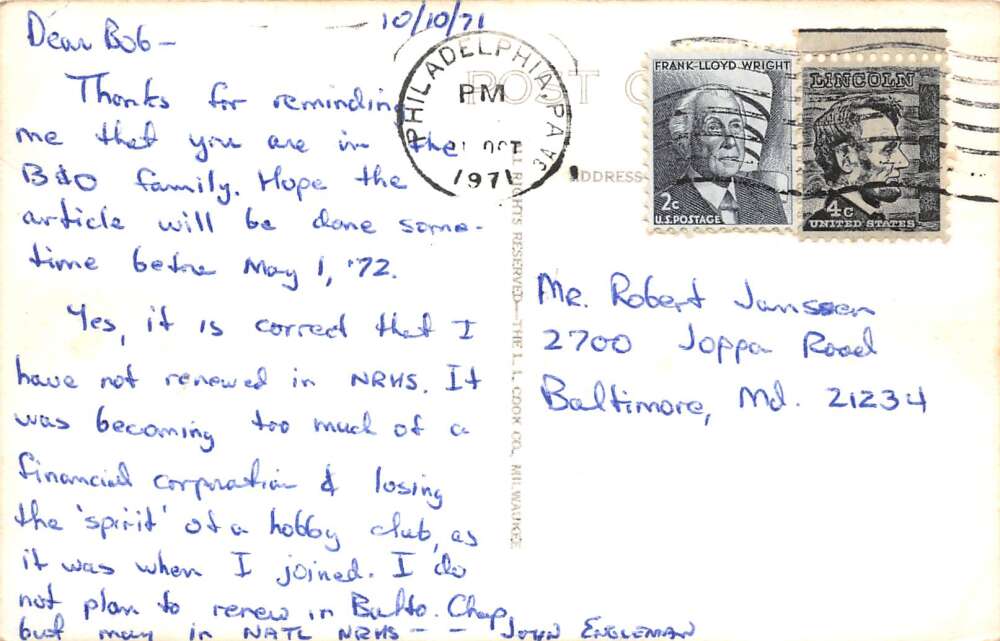 10/10/71
Dear Bob-
Thanks for reminding
me that you are in the
B&O family. Hope the
article will be done some-
time before May 1, '72.
Yes, it is correct that I
have not renewed in NRHS. It
was becoming too much of a
financial corporation & losing
the 'spirit' of a hobby club, as
it was when I joined. I do
not plan to renew in Balto. Chap,
but may in NATL NRHS - - JOHN ENGLEMAN
PHILADELPHIA, PA
PM
OCT
1971
POST
ADDRESS
FRANK·LLOYD WRIGHT
2c
U.S. POSTAGE
LINCOLN
4c
UNITED STATES
ALL RIGHTS RESERVED—THE L. L. COOK CO., MILWAUKEE
Mr. Robert Janssen
2700 Joppa Road
Baltimore, Md. 21234